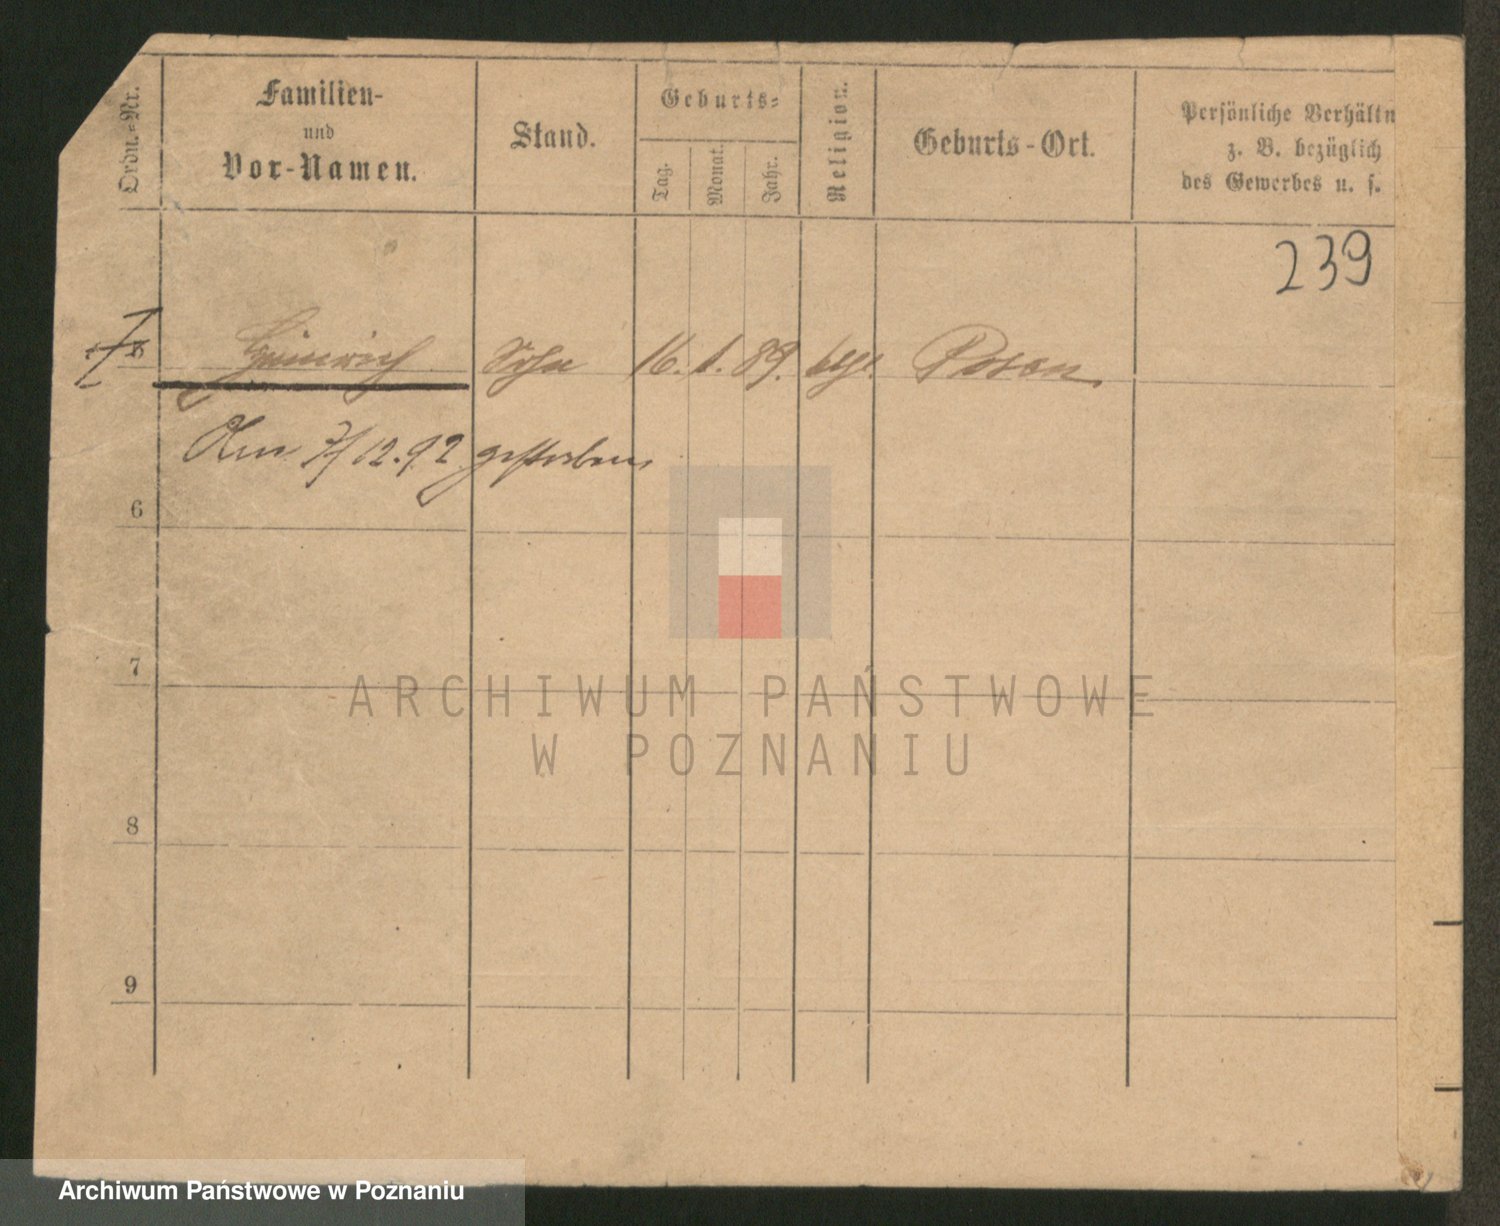 Ordn.-Nr.
Familien-
und
Vor-Namen.
Stand.
Geburts-
Tag.
Monat.
Jahr.
Religion.
Geburts-Ort.
Persönliche Verhältn
z. B. bezüglich
des Gewerbes u. s.
239
Heinrich Sohn 16. 1. 89. Posen
Am 7/12.92 gestorben
6
7
8
9
ARCHIWUM PAŃSTWOWE
W POZNANIU
Archiwum Państwowe w Poznaniu